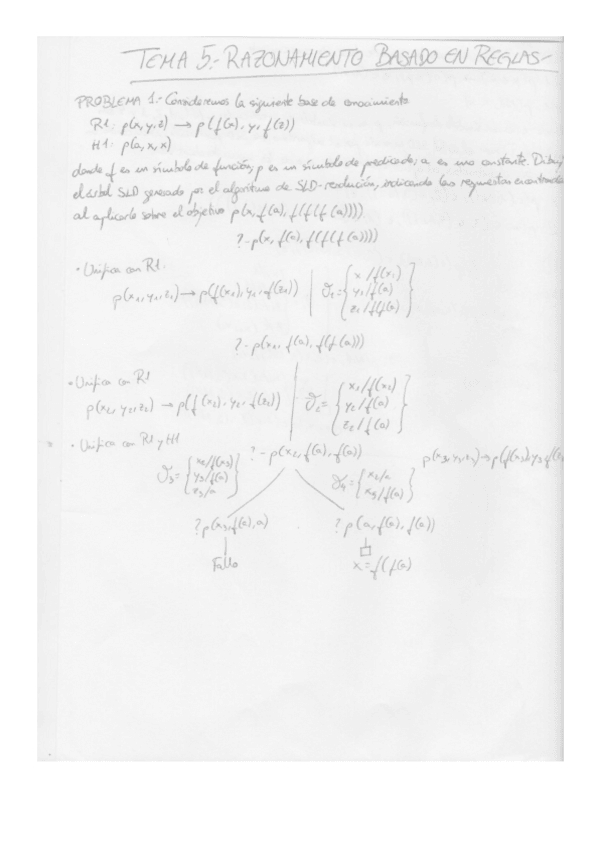 TEMA 5.- RAZONAMIENTO BASADO EN REGLAS-
PROBLEMA 1.- Consideremos la siguiente base de conocimiento
R1: p(x,y,z) → p(f(x), y, f(z))
H1: p(a,x,x)
donde f es un símbolo de función, p es un símbolo de predicado, a es una constante. Dibuj
el árbol SLD generado por el algoritmo de SLD-resolución, indicando las respuestas encontradas
al aplicarlo sobre el objetivo p(x, f(a), f(f(f(a))))
?-p(x, f(a), f(f(f(a))))
• Unifica con R1.
p(x1,y1,z1) → p(f(x1), y1, f(z1)) | ϑ1 = { x/f(x1) y1/f(a) z1/f(f(a)) }
?- p(x1, f(a), f(f(a)))
• Unifica con R1
p(x2, y2, z2) → p(f(x2), y2, f(z2)) ϑ2 = { x1/f(x2) y2/f(a) z2/f(a) }
• Unifica con R1 y H1
?-p(x2, f(a), f(a)) p(x3,y3,z3)→p(f(x3),y3,f(
ϑ3 = { x2/f(x3) y3/f(a) z3/a } ϑ4 = { x2/a /f(a) }
?p(x3,f(a),a) ?p(a,f(a),f(a))
Fallo x=f(f(a)